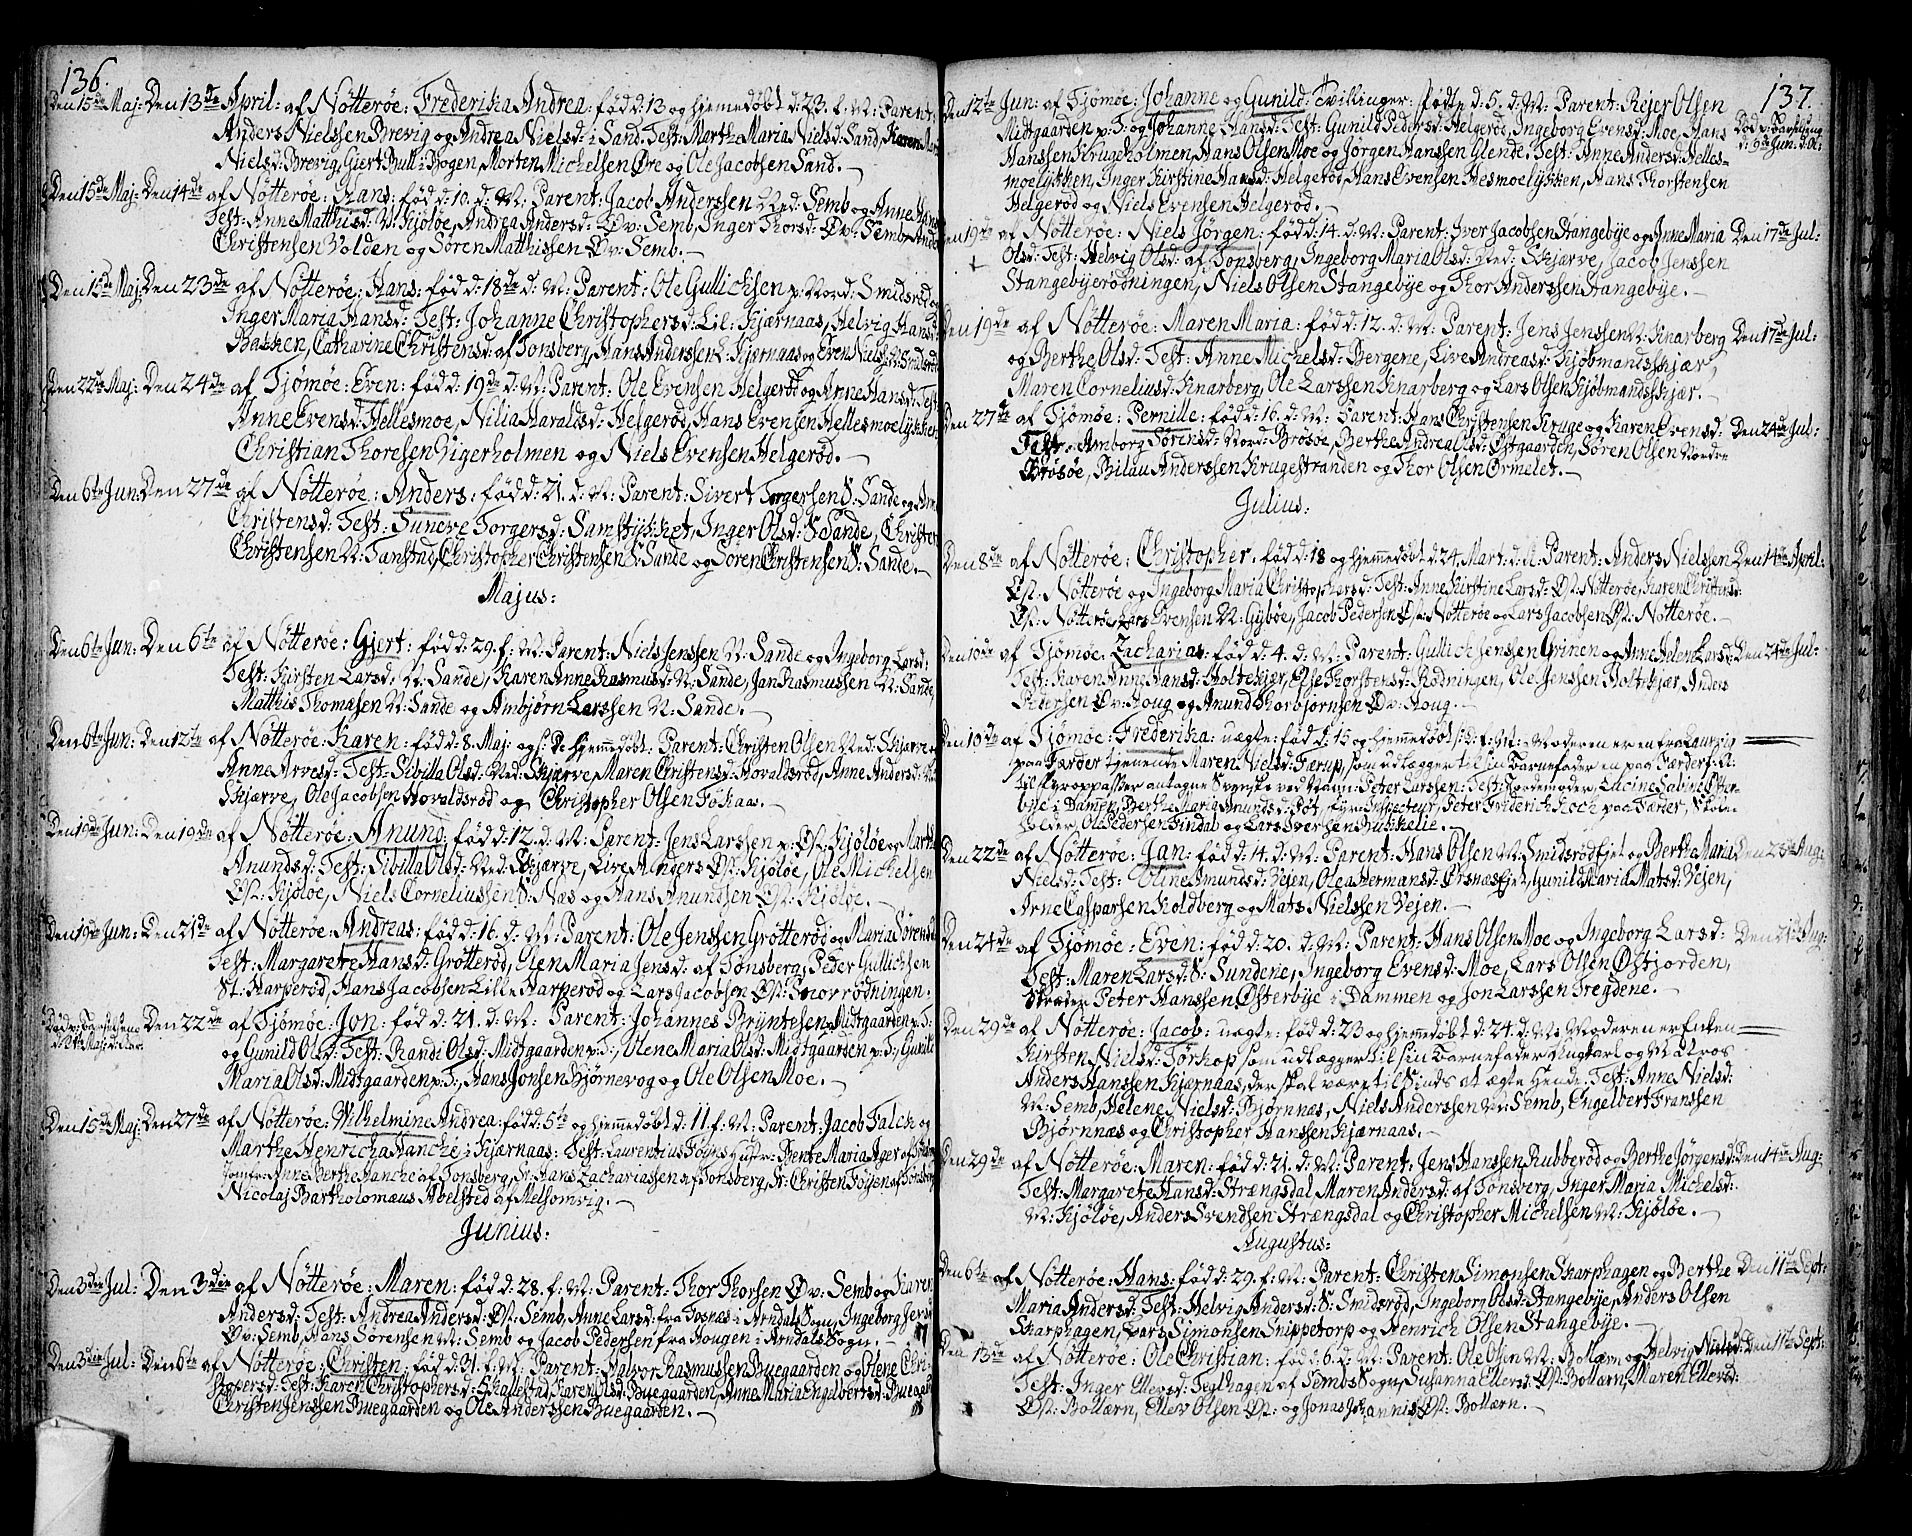 136.
Den 15de Maj: Den 13de April: af Nötterøe: Frederika Andrea: född: 13 og hjemmedöbt d: 23. f: M: Parent:
Anders Nielssen Brevig og Andrea Nielsd: i Sand. Test: Marthe Maria Nielsd: Sand, Karen
Nielsd: Brevig, Giert Bull i Bogen, Morten Michelsen Öre og Ole Jacobsen Sand. —
Den 15de Maj: Den 14de af Nötterøe: Hans: född: 10. d: M: Parent: Jacob Anderssen Ned: Semb og Anne
Test: Anne Matthisd: N: Kjölöe, Andrea Andersd: Öv: Semb, Inger Thorsd: Öv: Semb,
Christensen Volden og Sören Matthissen Öv: Semb. —
Den 15de Maj: Den 23de af Nötterøe: Hans: född: 18de d: M: Parent: Ole Gullichsen p: Nord: Smidsröd og
Inger Maria Hansd: Test: Johanne Christophersd: Lil: Kjærnaas, Helvig Hansd:
Bakken, Catharine Christensd: af Tonsberg, Hans Anderssen L: Kjærnaas og Even Nielss: N: Smidsröd
Den 22de Maj: Den 24de af Tjömöe: Even: född: 19de d: M: Parent: Ole Evensen Helgeröd og Anne Hansd: Test:
Anne Evensd: Hellesmoe, Nilia Haraldsd: Helgeröd, Hans Evensen Hellesmoelykken
Christian Thoresen Vigerholmen og Niels Evensen Helgeröd. —
Den 6te Jun: Den 27de af Nötterøe: Anders: född: 21. d: M: Parent: Sivert Torgersen S: Sande og
Christensd: Test: Suneve Torgersd: Samstykket, Inger Olsd: S: Sande, Christen
Christensen N: Tanstad, Christopher Christensen S: Sande og Sören Christensen S: Sande. —
Majus:
Den 6te Jun: Den 6te af Nötterøe: Gjert: född: 29. f: M: Parent: Niels Jenssen N: Sande og Ingeborg Larsd:
Test: Kirsten Larsd: N: Sande, Karen Anne Rasmusd: N: Sande, Jan Rasmussen N: Sande,
Matthis Thomasen N: Sande og Ambjörn Larssen N: Sande. —
Den 6te Jun: Den 12te af Nötterøe: Karen: född: 8. Maj: og s: D: hjemmedöbt: Parent: Christen Olsen Ned: Skjærve og
Anne Arvesd: Test: Sibilla Olsd: Ned: Skjærve, Maren Christensd: Hovaldsröd, Anne Andersd:
Skjærve, Ole Jacobsen Hovaldsröd og Christopher Olsen Fökaas. —
Den 19de Jun: Den 19de af Nötterøe: Anund: född: 12. d: M: Parent: Jens Larssen p: Öst: Kjölöe og
Anundsd: Test: Sibilla Olsd: Ned: Skjærve, Live Anders: Öst: Kjölöe, Ole Michelsen
Öst: Kjölöe, Niels Corneliussen S: Nas og Hans Anundssen Öst: Kjölöe. —
Den 19de Jun: Den 21de af Nötterøe: Andreas: född: 16. d: M: Parent: Ole Jenssen Grötteröd og Maria Sörensd:
Test: Margarete Hansd: Grötteröd, Elen Maria Jensd: af Tönsberg, Peder Gullichsen
St: Harperöd, Hans Jacobsen Lille Harperöd og Lars Jacobsen Öst: Snorrödningen.
Den 22de af Tjömöe: Jon: född: 21. d: M: Parent: Johannes Bryntesen Midtgaarden p: T:
og Gunild Olsd: Test: Randi Olsd: Midtgaarden p: T:, Olene Maria Olsd: Midtgaarden p: T:, Gunild
Maria Olsd: Midtgaarden p: T:, Hans Jonsen Bjørnevog og Ole Olsen Moe. —
Den 15de Maj: Den 27de af Nötterøe: Wilhelmine Andrea: född: 5te og hjemmedöbt d: 11. f: M: Parent: Jacob Falck og
Marthe Henricha Hanche i Kjærnaas: Test: Laurentius Föyns Hustr: Bente Maria Ager af
Jomfr: Anne Berthe Hanche af Tonsberg, Sr: Hans Zachariassen af Tonsberg, Sr: Christen Föyen af Tönsberg
Nicolaj Bartholomæus Abelsted af Melsomvig. —
Junius:
Den 3die Jul: Den 3die af Nötterøe: Maren: född: 28. f: M: Parent: Thor Thorsen Öv: Semb og Karen
Andersd: Test: Andrea Andersd: Öst: Semb, Anne Larsd: fra Fosnes i Arndals Sogn, Ingeborg
Öv: Semb, Hans Sörensen N: Semb og Jacob Pedersen fra Hougen i Arndals Sogn. —
Den 3die Jul: Den 6te af Nötterøe: Christen: född: 31. f: M: Parent: Halvor Rasmussen Buegaarden og Olene Chri-
stopersd: Test: Karen Christophersd: Skallestad, Karen Olsd: Buegaarden, Anne Maria Engelbertsd: Buegaard
Christen Jenssen Buegaarden og Ole Anderssen Buegaarden. —
137.
Den 12te Jun: af Tjömöe: Johanne og Gunild: Tvillinger: födte d: 5. d: M: Parent: Rejer Olsen
Midtgaarden p: T: og Johanne Hansd: Test: Gunild Pedersd: Helgeröd, Ingeborg Evensd: Moe, Hans
Hanssen Krugeholmen, Hans Olsen Moe og Jörgen Hanssen Glende. Test: Anne Andersd: Helles-
moelykken, Inger Kirstine Hansd: Helgeröd, Hans Evensen Hesmoelykken, Hans Thorstensen
Helgeröd og Niels Evensen Helgeröd. —
Den 19de af Nötterøe: Niels Jörgen: född: 14. d: M: Parent: Iver Jacobsen Stangebye og Anne Maria Den 17de Jul:
Olsd: Test: Helvig Olsd: af Tonsberg, Ingeborg Maria Olsd: Ned: Skjærve, Jacob Jenssen
Stangebyerödningen, Niels Olsen Stangebye og Thor Anderssen Stangebye. —
Den 19de af Nötterøe: Maren Maria: född: 12. d: M: Parent: Jens Jenssen N: Knarberg Den 17de Jul:
og Berthe Olsd: Test: Anne Michelsd: Bergene, Live Andreasd: Kjöbmandsskjær,
Maren Corneliusd: Knarberg, Ole Larssen Knarberg og Lars Olsen Kjöbmandsskjær. —
Den 27de af Tjömöe: Pernille: född: 16. d: M: Parent: Hans Christensen Kruge og Karen Evensd: Den 24de Jul:
Test: Amborg Sörensd: Nord: Brösöe, Berthe Andrea Olsd: Östgaarden, Sören Olsen Nordre
Brösöe, Bilau Anderssen Krugestranden og Thor Olsen Ormelet. —
Julius:
Den 8de af Nötterøe: Christopher, född: 18 og hjemmedöbt d: 24. Mart: d: A: Parent: Anders Nielssen Den 14de April:
Öst: Nötteröe og Ingeborg Maria Christophersd: Test: Anne Kirstine Larsd: Öst: Nötteröe, Karen Christensd:
Öst: Nötteröe, Lars Evensen N: Gyböe, Jacob Pedersen Öst: Nötteröe og Lars Jacobsen Öst: Nötteröe. —
Den 10de af Tjömöe: Zacharias: född: 4. d: M: Parent: Gullich Jenssen Grinen og Anne Helen Larsd: Den 24de Jul:
Test: Karen Anne Hansd: Holtekjær, Else Thorstensd: Rödningen, Ole Jenssen Holtekjær, Anders
Pedersen Öv: Houg og Anund Thorbjornsen Öv: Houg. —
Den 10de af Tjömöe: Frederika: uægte: född: 15 og hjemmedöbt s: D: f: M: Moderen er en fra Laurvig
paa Færder tjenende Maren Nielsd: Færup, som udlægger til sin Barnefader en paa Færder f: A:
til Fyropasser antagne Svenske ved Navn: Peter Larssen: Test: Jordemoder, Lacine Sabine Öster-
bye i Damen, Berthe Maria Amundsd: Röt, Fyr-Inspecteur, Peter Friderich Koch paa Færder, Skole-
holder, Ole Pedersen Findal og Lars Iversen Brushelie. —
Den 22de af Nötterøe: Jan: född: 14. d: M: Parent: Hans Olsen N: Smidsrödfjet og Berthe Maria
Nielsd: Test: Oline Amundsd: Vejen, Olea Hermansd: Örsnæsfjet, Gunild Maria Matsd: Vejen,
Arne Casparsen Holdberg og Mats Nielssen Vejen. —
Den 24de af Tjömöe: Even: född: 20. d: M: Parent: Hans Olsen Moe og Ingeborg Larsd: Den 21de Aug:
Test: Maren Larsd: S: Sundene, Ingeborg Evensd: Moe, Lars Olsen Östjorden,
Peter Hanssen Österbye i Dammen og Jon Larssen Tregdene. —
Den 29de af Nötterøe: Jacob: uægte: född: 23 og hjemmedöbt d: 24. d: M: Moderen er Enken
Kirsten Nielsd: Törkop, som udlægger til sin Barnefader Ungkarl og Matros
Anders Hanssen Kjærnaas, der skal være til Sinds at ægte Hende. Test: Anne Nielsd:
N: Semb, Helene Nielsd: Bjørnnæs, Niels Anderssen N: Semb, Engelbert Franssen
Bjørnnæs og Christopher Hanssen Kjærnaas. —
Den 29de af Nötterøe: Maren: född: 21. d: M: Parent: Jens Hanssen Rubberöd og Berthe Jörgensd: Den 14de Aug:
Test: Margarete Hansd: Strængsdal, Maren Andersd: af Tönsberg, Inger Maria Michelsd:
N: Kjölöe, Anders Svendsen Strængsdal og Christopher Michelsen N: Kjölöe. —
Augustus:
Den 6te af Nötterøe: Hans: född: 29. f: M: Parent: Christen Simonsen Skarphagen og Berthe Den 11te Sept:
Maria Andersd: Test: Helvig Andersd: S: Smidsröd, Ingeborg Olsd: Stangebye, Anders Olsen
Skarphagen, Lars Simonsen Snippetorp og Henrich Olsen Stangebye. —
Den 13de af Nötterøe: Ole Christian: född: 6. d: M: Parent: Ole Olsen N: Bollærn og Helvig Nielsd: Den 11te Sept:
Test: Inger Ellevsd: Teglhagen af Sembs Sogn, Susanna Ellevs: Öst: Bollærn, Maren Ellevsd:
Öst: Bollærn, Ellev Olsen Öst: og Jonas Johannis Öst: Bollærn. —